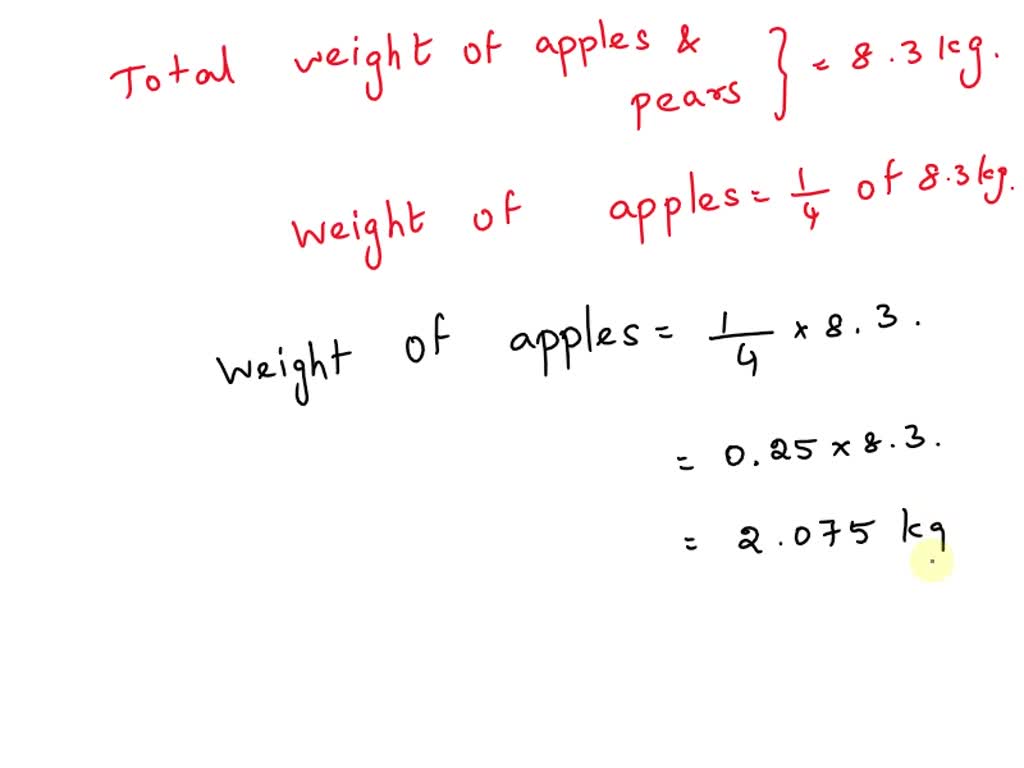 Total weight of apples &
pears } = 8.3 kg.
weight of apples = 1/4 of 8.3 kg.
weight of apples = 1/4 × 8.3.
= 0.25 × 8.3.
= 2.075 kg